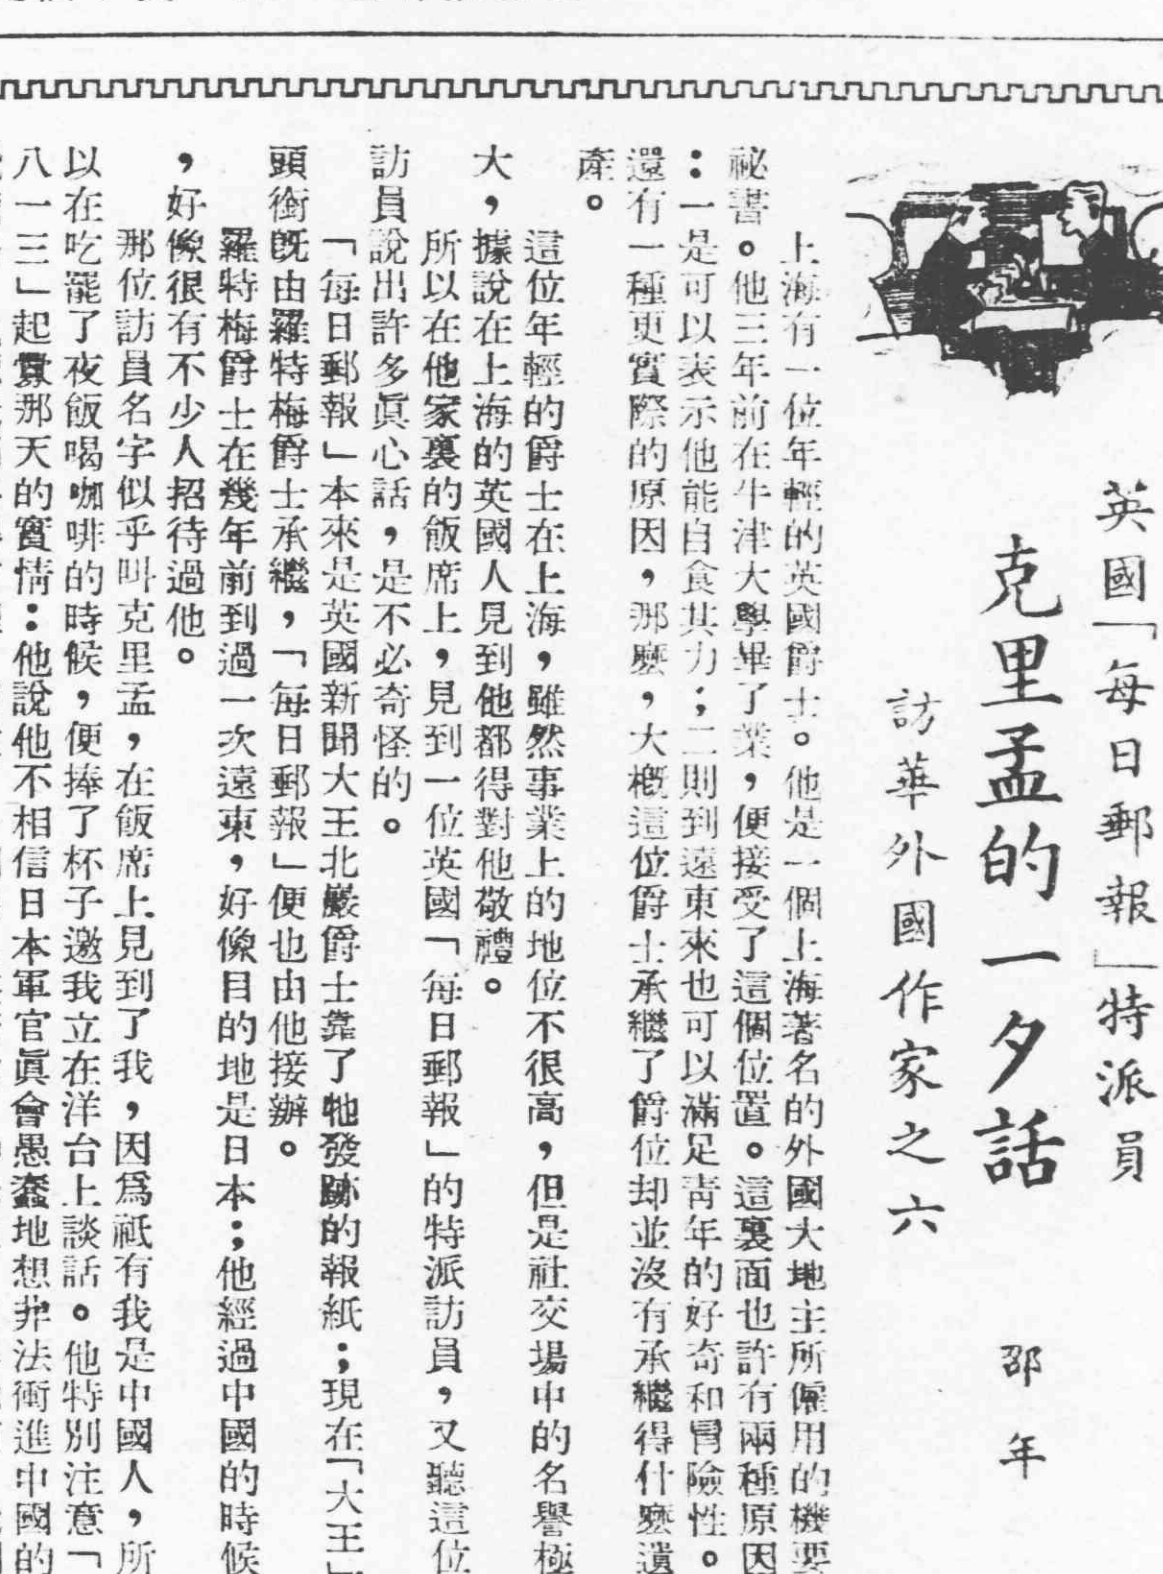 英國「每日郵報」特派員
克里孟的一夕話
訪華外國作家之六
邵年
上海有一位年輕的英國爵士。他是一個上海著名的外國大地主所僱用的機要
祕書。他三年前在牛津大學畢了業,便接受了這個位置。這裏面也許有兩種原因
:一是可以表示他能自食其力;二則到遠東來也可以滿足靑年的好奇和冒險性。
還有一種更實際的原因,那麽,大槪這位爵士承繼了爵位却並沒有承繼得什麽遺
產。
這位年輕的爵士在上海,雖然事業上的地位不很高,但是社交場中的名譽極
大,據說在上海的英國人見到他都得對他敬禮。
所以在他家裏的飯席上,見到一位英國「每日郵報」的特派訪員,又聽這位
訪員說出許多眞心話,是不必奇怪的。
「每日郵報」本來是英國新聞大王北巖爵士靠了牠發跡的報紙;現在「大王」
頭銜旣由羅特梅爵士承繼,「每日郵報」便也由他接辦。
羅特梅爵士在幾年前到過一次遠東,好像目的地是日本;他經過中國的時候
,好像很有不少人招待過他。
那位訪員名字似乎叫克里孟,在飯席上見到了我,因爲祇有我是中國人,所
以在吃罷了夜飯喝咖啡的時候,便捧了杯子邀我立在洋台上談話。他特別注意「
八一三」起釁那天的實情:他說他不相信日本軍官眞會愚蠢地想非法衝進中國的